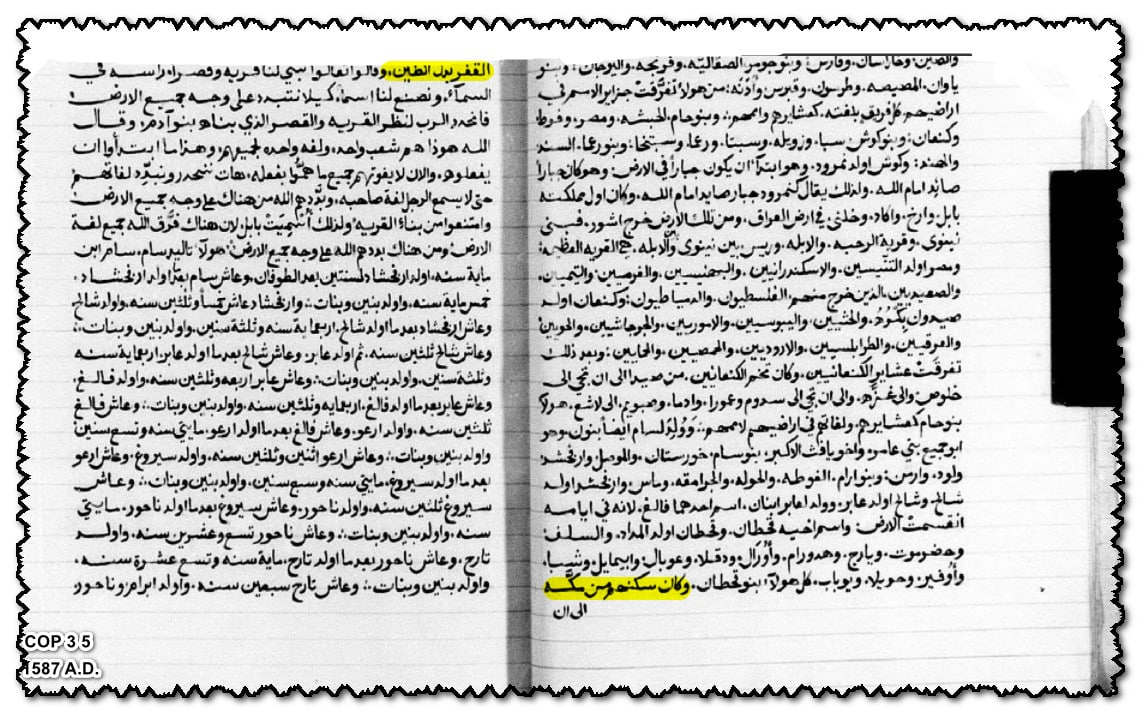 والصين وخراسان. وفارس: وبنو جومر. الصقالبه. وفرنجه. والبرجان: وبنو
ياوان. المصيصه. وطرسوس. وقبرس وأدنه: من هولاء تفرقت جزاير الامم في
اراضيهم. كل فريق بلغته. كعشايرهم واممهم: وبنو حام. الحبشه. ومصر. وفوط
وكنعان. وبنو كوش سبا. وزويله. وسبتا. ورعما. وسبتخا. وبنو رعما. السند
والهند: وكوش اولد نمرود. وهو ابتدأ ان يكون جباراً في الارض: وهو كان جباراً
صايد امام الله. ولذلك يقال كنمرود جبار صايد امام الله. وكان اول مملكته
بابل وارخ. واكاد. وخلني. في ارض العراق. ومن تلك الارض خرج اشور. فبنى
نينوى. وقرية الرحبه. والابله. وريس بين نينوى والابله. هي القريه العظيمه:
ومصر اولد التنيسيين. والاسكندرانيين. والبهنسيين. والفرميين. والتيميان.
والصعيديين. الذين خرج منهم. الفلسطيون. والدمياطيون: وكنعان اولد
صيدون بكره. والحثيين. واليبوسيين. والاموريين. والجرجاشيين. والحويين.
والعرقيين. والطرابلسيين. والاروديين. والحمصيين. والحمايين: وبعد ذلك
تفرقت عشاير الكنعانيين. وكان تخم الكنعانين. من صيدا الى ان تجي الى
خلوص. والى غزه. والى ان تجي الى سدوم وعمورا. وادما. وصبويم. الى لاشع. هولاء
بنو حام كعشايرهم. ولغاتهم في اراضيهم لاممهم: وولد لسام ايضاً بنون. وهو
ابو جميع بني عامر. واخو يافث الاكبر: بنو سام. خورستان. والموصل وارفخشد
ولود. وارمن: وبنو ارام. الغوطه. والحوله. والجرامقه. وماس وارفخشد اولد
شالح. وشالح اولد عابر: وولد لعابر ابنان. اسم احدهما فالغ. لانه في ايامه
انقسمت الارض: واسم اخيه قحطان. وقحطان اولد المداد. والسلف.
وحضرموت. ويارح. وهدورام. واوزال. ودقلا. وعوبال. وابيمايل. وشبا.
وأوفير. وحويلا. ويوباب. كل هولاء بنو قحطان. وكان سكنهم من مكه
الى ان
القفر بدل الطين. وقالوا تعالوا نبني لنا قريه وقصراً. راسه في
السماء. ونصنع لنا اسماً. كيلا نتبدد على وجه جميع الارض:
فانحدر الرب لنظر القريه والقصر الذي بناه بنو آدم: وقال
الله هوذا هم شعب واحد. ولغه واحده لجميعهم. وهذا ما ابتدأوا ان
يفعلوه. والان لا يفوتهم جميع ما همّوا بفعله. هات ننحدر ونبدّد لغاتهم
حتى لا يسمع الرجل لغة صاحبه. وبدّدهم الله من هناك على وجه جميع الارض:
وامتنعوا من بناء القريه: ولذلك اُسميت بابل لان هناك فرّق الله جميع لغة
الارض: ومن هناك بددهم الله على وجه جميع الارض: هولاء تاليد سام. سام ابن
ماية سنه. اولد ارفخشاد لسنتين بعد الطوفان. وعاش سام بعدما اولد ارفخشاد.
خمس ماية سنه. واولد بنين وبنات: وارفخشاد عاش خمساً وثلثين سنه. واولد شالح
وعاش ارفخشاد بعدما اولد شالح. اربعماية سنه وثلثة سنين. واولد بنين وبنات:
وعاش شالح ثلثين سنه. ثم اولد عابر. وعاش شالح بعدما اولد عابر. اربعماية سنه
وثلثة سنين. واولد بنين وبنات: وعاش عابر اربعه وثلثين سنه. واولد فالغ.
وعاش عابر بعدما اولد فالغ. اربعمايه وثلثين سنه. واولد بنين وبنات: وعاش فالغ
ثلثين سنه. واولد ارعو. وعاش فالغ بعدما اولد ارعو. مايتي سنه وتسع سنين
واولد بنين وبنات: وعاش ارعو اثنين وثلثين سنه. واولد سيروغ. وعاش ارعو
بعدما اولد سيروغ. مايتي سنه وسبع سنين. واولد بنين وبنات: وعاش
سيروغ ثلثين سنه. واولد ناحور. وعاش سيروغ بعدما اولد ناحور. مايتي
سنه. واولد بنين وبنات: وعاش ناحور تسع وعشرين سنه. واولد
تارح. وعاش ناحور بعدما اولد تارح. ماية سنه وتسع عشرة سنه.
واولد بنين وبنات: وعاش تارح سبعين سنه. واولد ابرام وناحور
COP 3 5
1587 A.D.